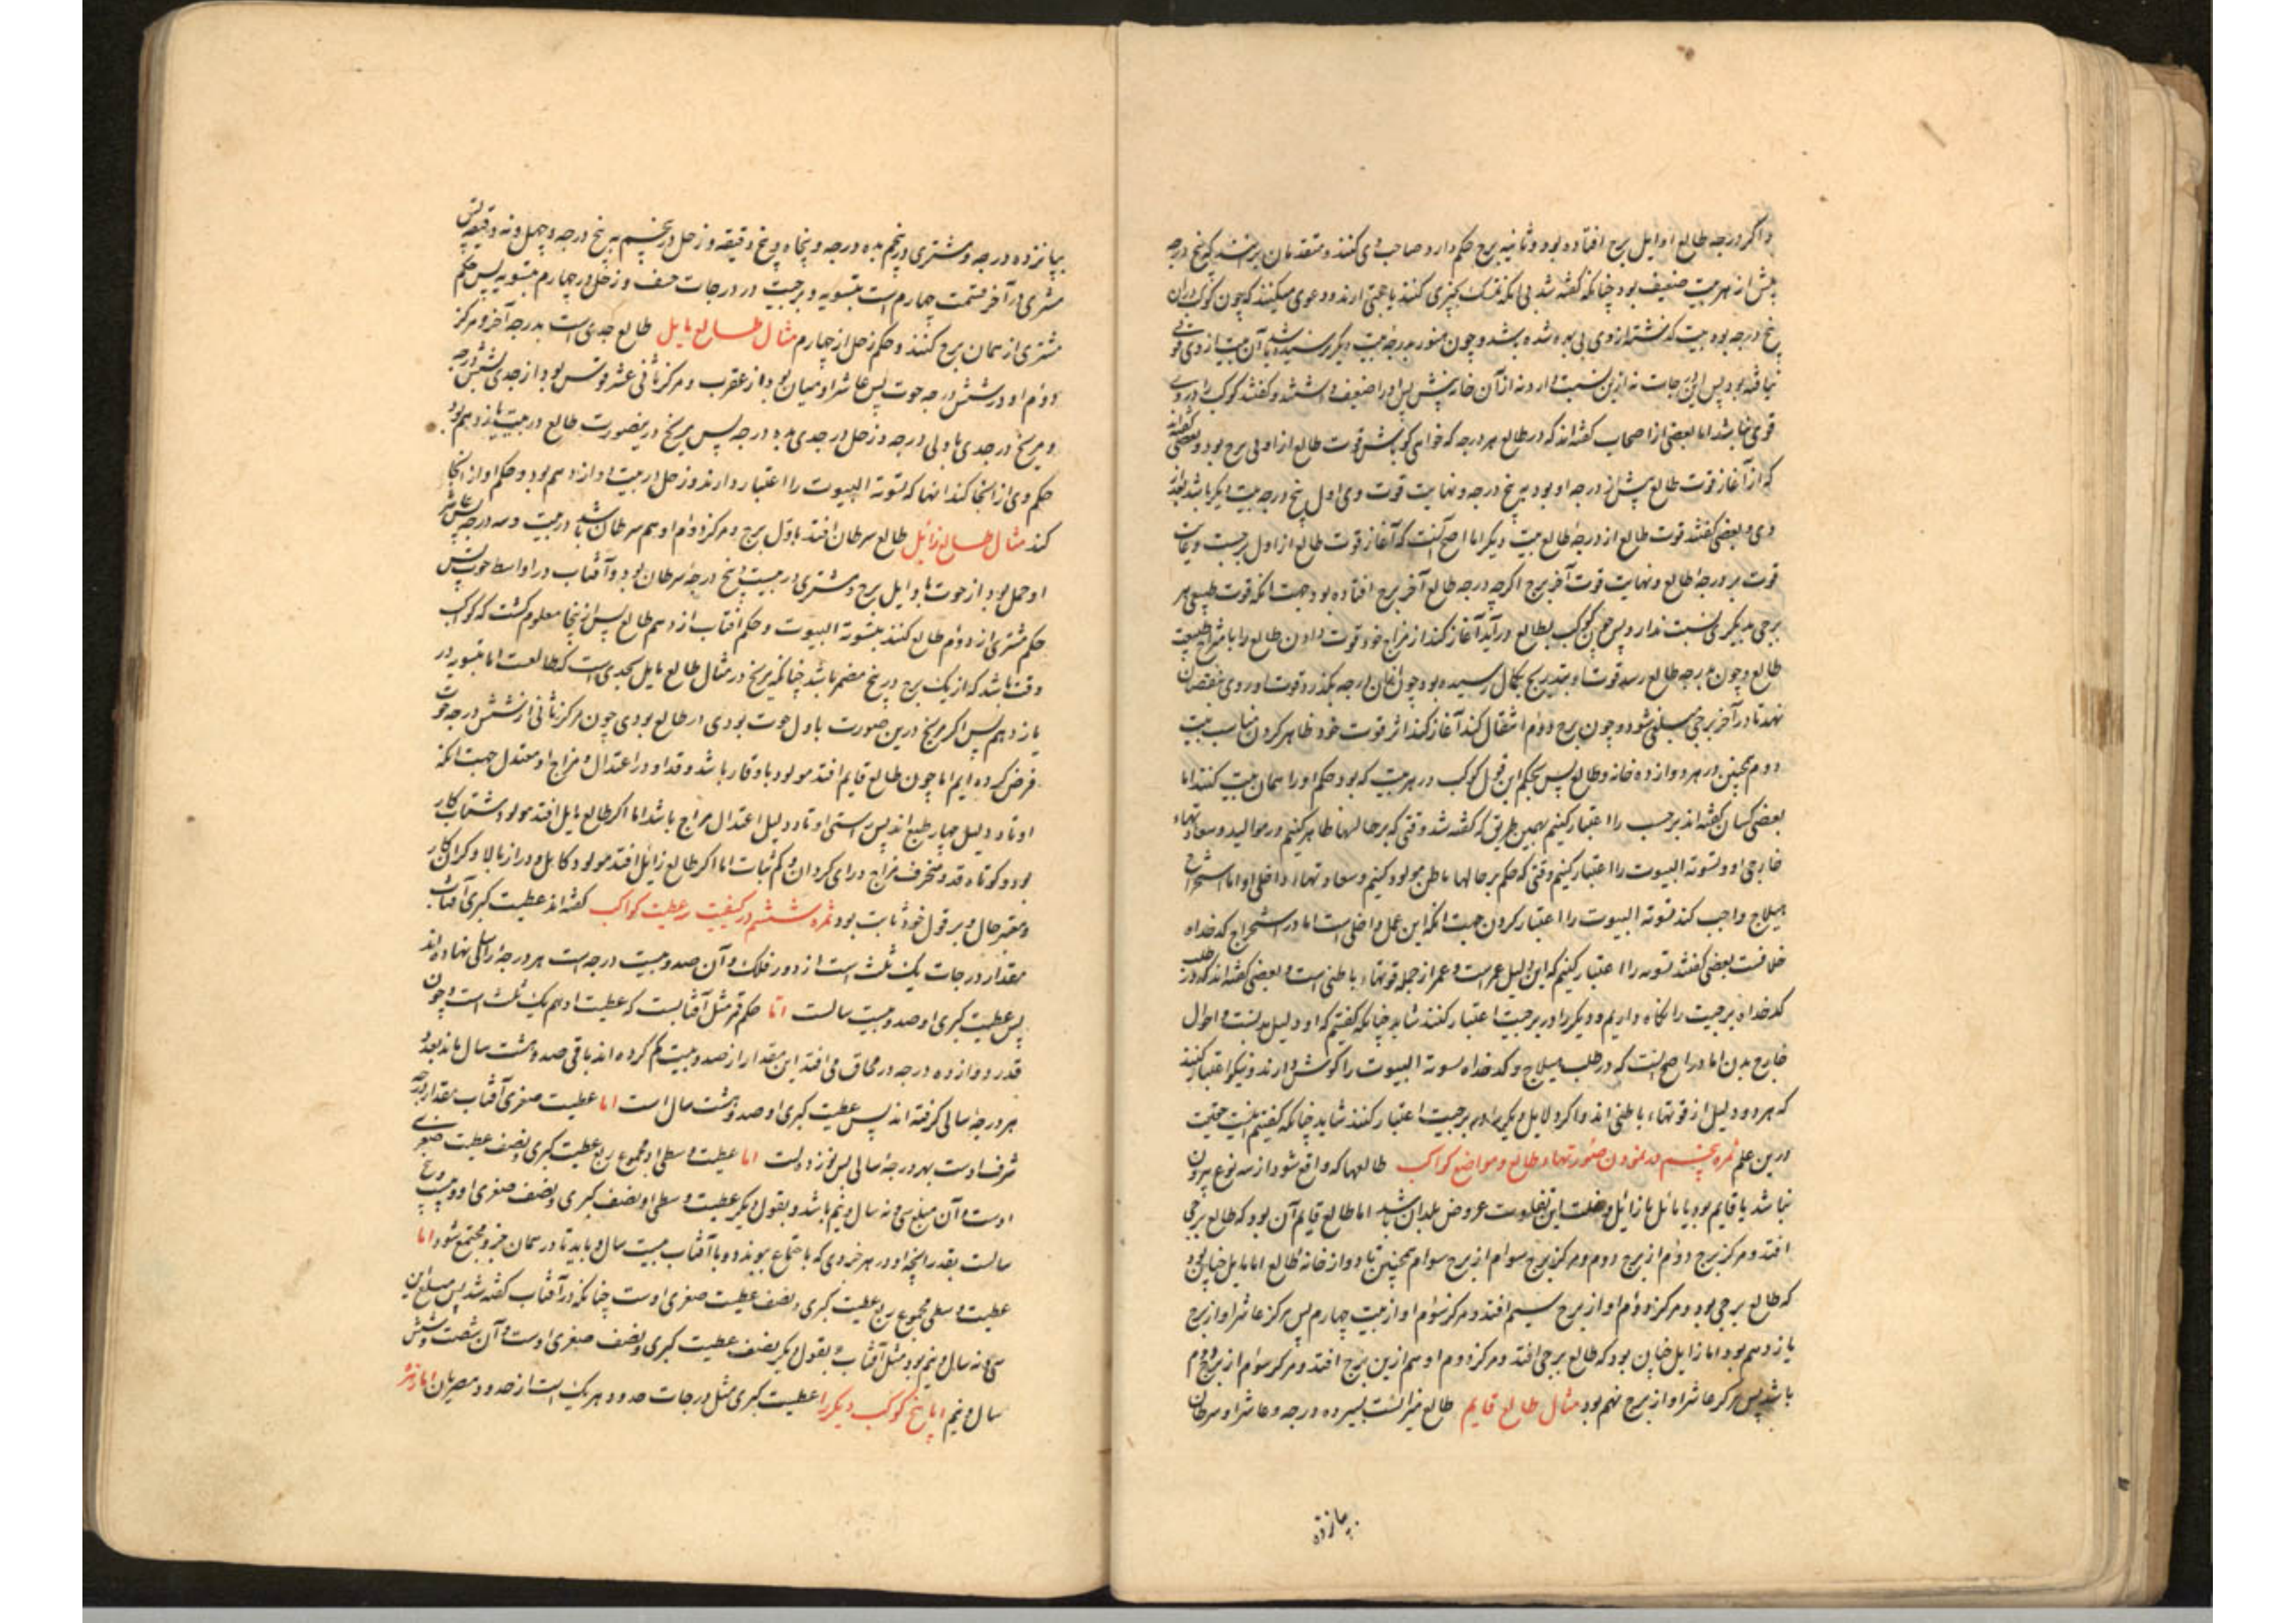 واکر درجه طالع اوایل برج افتاده بود و ثانیه برج حکم دارد صاحب وی کنند و متقدمان برانند که پنج درجه
پیش از هر بیت ضعیف بود چنانکه کفته شد بی انکه تمسک بچیزی کنند یا حجتی ارند و دعوی میکنند که چون کوکب دران
پنج درجه بود بیت کذشته از وی بی بهره شده باشد و چون هنوز بدرجه بیت دیکر نرسیده باشد آن بیت از وی قوتی
نیافته بود پس این درجات نه ازین نسبت دارد نه از آن خارنش پس او را ضعیف داشتند و کفتند کوکب درو
قوی نباشد اما بعضی از اصحاب کفته اند که در طالع هر درجه که خواهی کو باش قوت طالع از اول برج بود و بعضی کفته اند
که از آغاز قوت طالع پیش از درجه او بود به پنج درجه و نهایت قوت وی اول پنج درجه بیت دیکر باشد
وی و بعضی کفتند قوت طالع از درجه طالع بیت دیکر اما اصح آنست که آغاز قوت طالع از اول برجست و غایت
قوت بر درجه طالع و نهایت قوت آخر برج اکرچه درجه طالع آخر برج افتاده بود جهت انکه قوت طبیعی هر
برجی بدیکری نسبت ندارد پس چون کوکب بطالع درآید آغاز کند از مزاج خود قوت دادن طالع را با مزاج طبیعت
طالع و چون بدرجه طالع رسد قوت او بتدریج بکمال رسیده بود و چون ازان درجه بکذرد قوت او روی بنقصان
نهد تا در آخر برج و چون برج دوم انتقال کند آغاز کند اثر قوت خود ظاهر کردن مناسب بیت
دوم همچنین در هر دوازده خانه طالع پس بحکم این قول کوکب در هر بیت که بود حکم او را همان بیت کنند اما
بعضی کسان کفته اند برجیت را اعتبار کنیم بهمین طریق که کفته شد وقتی که بر حالها ظاهر کنیم در موالید و سعادتهاء
خارجی او و تسویة البیوت را اعتبار کنیم وقتی که حکم بر حالها باطن مولود کنیم و سعادتهاء داخلی او اما استخراج
هیلاج واجب کند تسویة البیوت را اعتبار کردن جهت انکه این عمل داخلی است اما در استخراج کدخداه
خلافست بعضی کفتند تسویه را اعتبار کنیم که این دلیل عمرست و عمر از جمله قوتهاء باطنی است و بعضی کفته اند که در طلب
کدخداه برجیت را نکاه داریم و دیکر را در برجیت اعتبار کنند شاید چنانکه کفتیم که او دلیل بدنست و احوال
خارج بدن اما درا صح انست که در طلب هیلاج و کدخداه تسویة البیوت را کوش دارند و نیکو اعتبار کنند
که هر دو دلیل از قوتهاء باطنی اند و اکر دلایل دیکر را در برجیت اعتبار کنند شاید چنانکه کفتیم اینست حقیقت
درین علم ثمره پنجم در نمودن صورتهاء طالع و مواضع کواکب طالعها که واقع شود از سه نوع بیرون
نباشد یا قایم بود یا مائل یا زائل و علت این تفاوت عروض بلدان باشد اما طالع قایم آن بود که طالع برجی
افتد و مرکز برج دوم از برج دوم و مرکز برج سوام از برج سوام همچنین تا دوازده خانه طالع اما مایل چنان بود
که طالع برجی بود و مرکز دوم او از برج سیم افتد و مرکز سوم او از بیت چهارم پس مرکز عاشر او از برج
یازدهم بود اما زایل چنان بود که طالع برجی افتد و مرکز دوم او هم ازین برج افتد و مرکز سوم از برج دوم
باشد پس مرکز عاشر او از برج نهم بود مثال طالع قایم طالع میزانست بسیزده درجه و عاشر او سرطان
پانزده
بپانزده درجه و مشتری در پنجم بده درجه و پنجاه و پنج دقیقه و زحل در پنجم به پنج درجه و چهل و نه دقیقه پس
مشتری در آخر قسمت چهارم است بتسویه و برجیت در درجات و زحل در چهارم بتسویه پس حکم
مشتری از همان برج کنند و حکم زحل از چهارم مثال طالع مایل طالع جدی است بدرجه آخر و مرکز
دوم او در شش درجه حوت پس عاشر او میان بود از عقرب و مرکز ثانی عشر قوس بود از جدی شش درجه
و مریخ در جدی باولی درجه و زحل در جدی بده درجه پس مریخ درین صورت طالع در بیت یازدهم بود
حکم وی از انجا کند انها که تسویة البیوت را اعتبار دارند و زحل در بیت دوازدهم بود و حکم او از انجا
کند مثال طالع زائل طالع سرطان افتد باول برج و مرکز دوام او هم سرطان باشد در بیست و سه درجه پس عاشر
او حمل بود از حوت باوایل برج و مشتری در بیست و پنج درجه سرطان بود و آفتاب در اواسط حوت پس
حکم مشتری از دوم طالع کنند بتسویة البیوت و حکم آفتاب از دهم طالع پس از اینجا معلوم کشت که کواکب
وقت باشد که از یک برج در پنج مضمر باشد چنانکه مریخ در مثال طالع مایل بجدی است که طالعست اما بتسویه در
یازدهم پس اکر مریخ درین صورت باول حوت بودی در طالع بودی چون مرکز ثانی از شش درجه حوت
فرض کرده ایم اما چون طالع قایم افتد مولود با وقار باشد و قد او در اعتدال و مزاج او معتدل جهت انکه
اوتاد دلیل چهار طبع اند پس راستی اوتاد دلیل اعتدال مزاج باشد اما اکر طالع مایل افتد مولود شتاب کار
بود و کوتاه قد و منحرف مزاج و رای کردان و کم ثبات اما اکر طالع زائل افتد مولود کاهل و دراز بالا و کران کار
و متغیر حال و بر قول خود ثابت بود ثمره ششم در کیفیت عطیت کواکب کفته اند عطیت کبری آفتاب
مقدار درجات یک ثلث است از دور فلک و آن صد و بیست درجه است هر درجه را سالی نهاده اند
پس عطیت کبری او صد و بیست سالست اما حکم قمر مثل آفتابست که عطیت او هم یک ثلث است و چون
قدر دوازده درجه در محاق می افتد این مقدار از صد و بیست کم کرده اند باقی صد و هشت سال ماند بعدد
هر درجه سالی کرفته اند پس عطیت کبری او صد و هشت سال است اما عطیت صغری آفتاب بمقدار درجه
شرف اوست بهر درجه سالی پس نوزده است اما عطیت وسطی او مجموع ربع عطیت کبری و نصف عطیت صغری
اوست و آن مبلغ سی و نه سال و نیم باشد و بقول دیکر عطیت وسطی او نصف کبری و نصف صغری او و بیست و پنج
سالست بقدر انچه او در هر خردی که باجتماع پیوندد با آفتاب بیست سال و باید تا در همان جزو مجتمع شود اما
عطیت وسطی مجموع ربع عطیت کبری و نصف عطیت صغری اوست چنانکه در آفتاب کفته شد پس مبلغ این
سی و نه سال و نیم بود مثل آفتاب و بقول دیکر نصف عطیت کبری و نصف صغری اوست و آن شصت و شش
سال و نیم اما پنج کوکب دیکر را عطیت کبری مثل درجات حدود هر یک است از حدود مصریان اما زهره